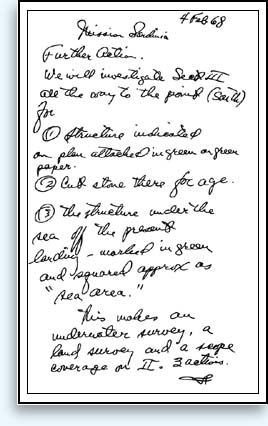 4 Feb 68
Mission Sardinia
Further Action.
We will investigate Sect III
all the way to the point (South)
for
(1) Structure indicated
on plan attached in green on green
paper.
(2) Cut stone there for age.
(3) The structure under the
sea off the present
landing – marked in green
and squared approx as
"sea area."
This makes an
underwater survey, a
land survey and a scope
coverage on II. 3 actions.